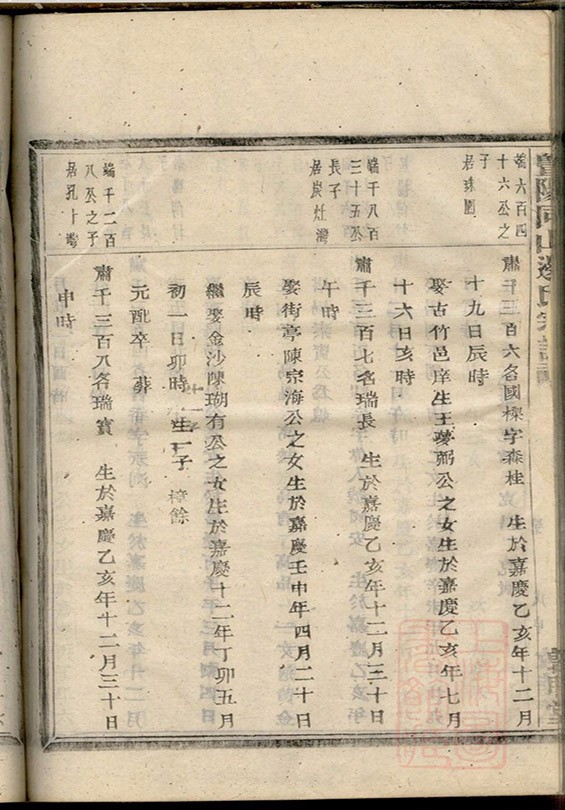 端六百四
十六公之
子
居珠園
肅千三百六名國樑字森桂 生於嘉慶乙亥年十二月
十九日辰時
娶古竹邑庠生王夢弼公之女生於嘉慶乙亥年七月
十六日亥時
端千八百
三十五公
長子
居炭灶灣
肅千三百七名瑞長 生於嘉慶乙亥年十二月三十日
午時
娶街亭陳宗海公之女生於嘉慶壬申年四月二十日
辰時
繼娶金沙陳瑚有公之女生於嘉慶十二年丁卯五月
初一日卯時 生一子 樟餘
元配卒 葬
端千二百
八公之子
居孔十灣
肅千三百八名瑞寶 生於嘉慶乙亥年十二月三十日
申時